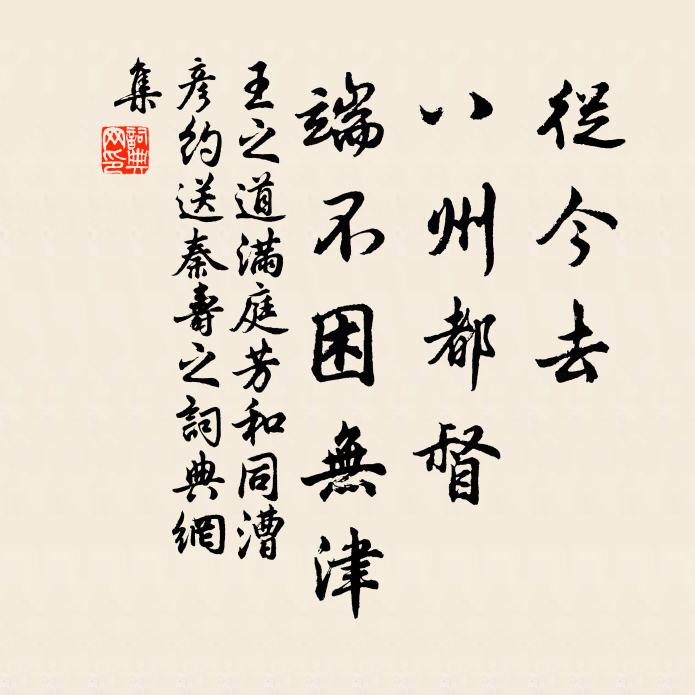 從今去
八州都督
端不困無津
王之道滿庭芳和同漕
彦約送秦壽之詞典網
集
詞典網印